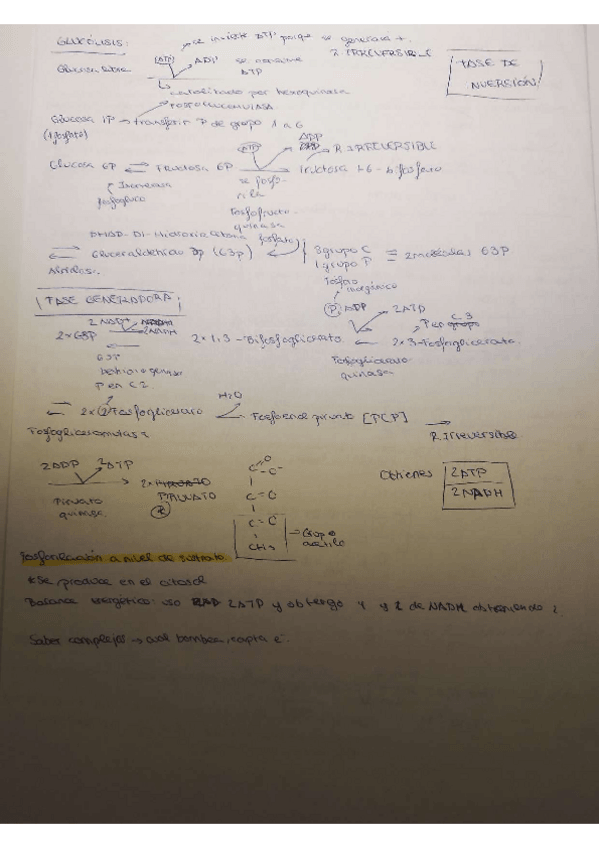 GLUCÓLISIS:
se invierte ATP porque se generara +.
2 IRREVERSIBLE
FASE DE INVERSIÓN
Glucosa libre
ATP
ADP
se consume ATP
catalizado por hexoquinasa
FOSFOGLUCOMUTASA
Glucosa 1P → transferir P de grupo 1 a 6
(1 fosfato)
ATP
ADP
R. IRREVERSIBLE
Glucosa 6P ⇌ Fructosa 6P → Fructosa 1-6-bifosfato
Isomerasa
fosfogluco
se fosforila
Fosfofructoquinasa
DHAP
fosfato)
⇌ Gliceraldehido 3p (G3p)
3 grupo C
1 grupo P
= 2 moléculas G3P
Aldolasa.
fosfato inorgánico
FASE GENERADORA
2 NAD+
2 NADH
P
ADP
2ATP
P en C3
2 x G3P
2 x 1,3-Bifosfoglicerato ← 2 x 3-Fosfoglicerato
G3P
P en C2
Fosfoglicerato quinasa
H2O
⇌ 2 x 2 Fosfoglicerato
Fosfoenol piruvato [PEP] →
Fosfogliceromutasa
R. Irreversible
2ADP
2ATP
2 x PIRUVATO
Piruvato quinasa
C O O-
C=O
CH3
Grupo acetilo
Obtienes
2ATP
2NADH
Fosforilación a nivel de sustrato.
*Se produce en el citosol
Balance energético: uso 2ATP y obtengo 4 y 2 de NADH obteniendo 2
Saber complejos → cual bombea, capta e-.